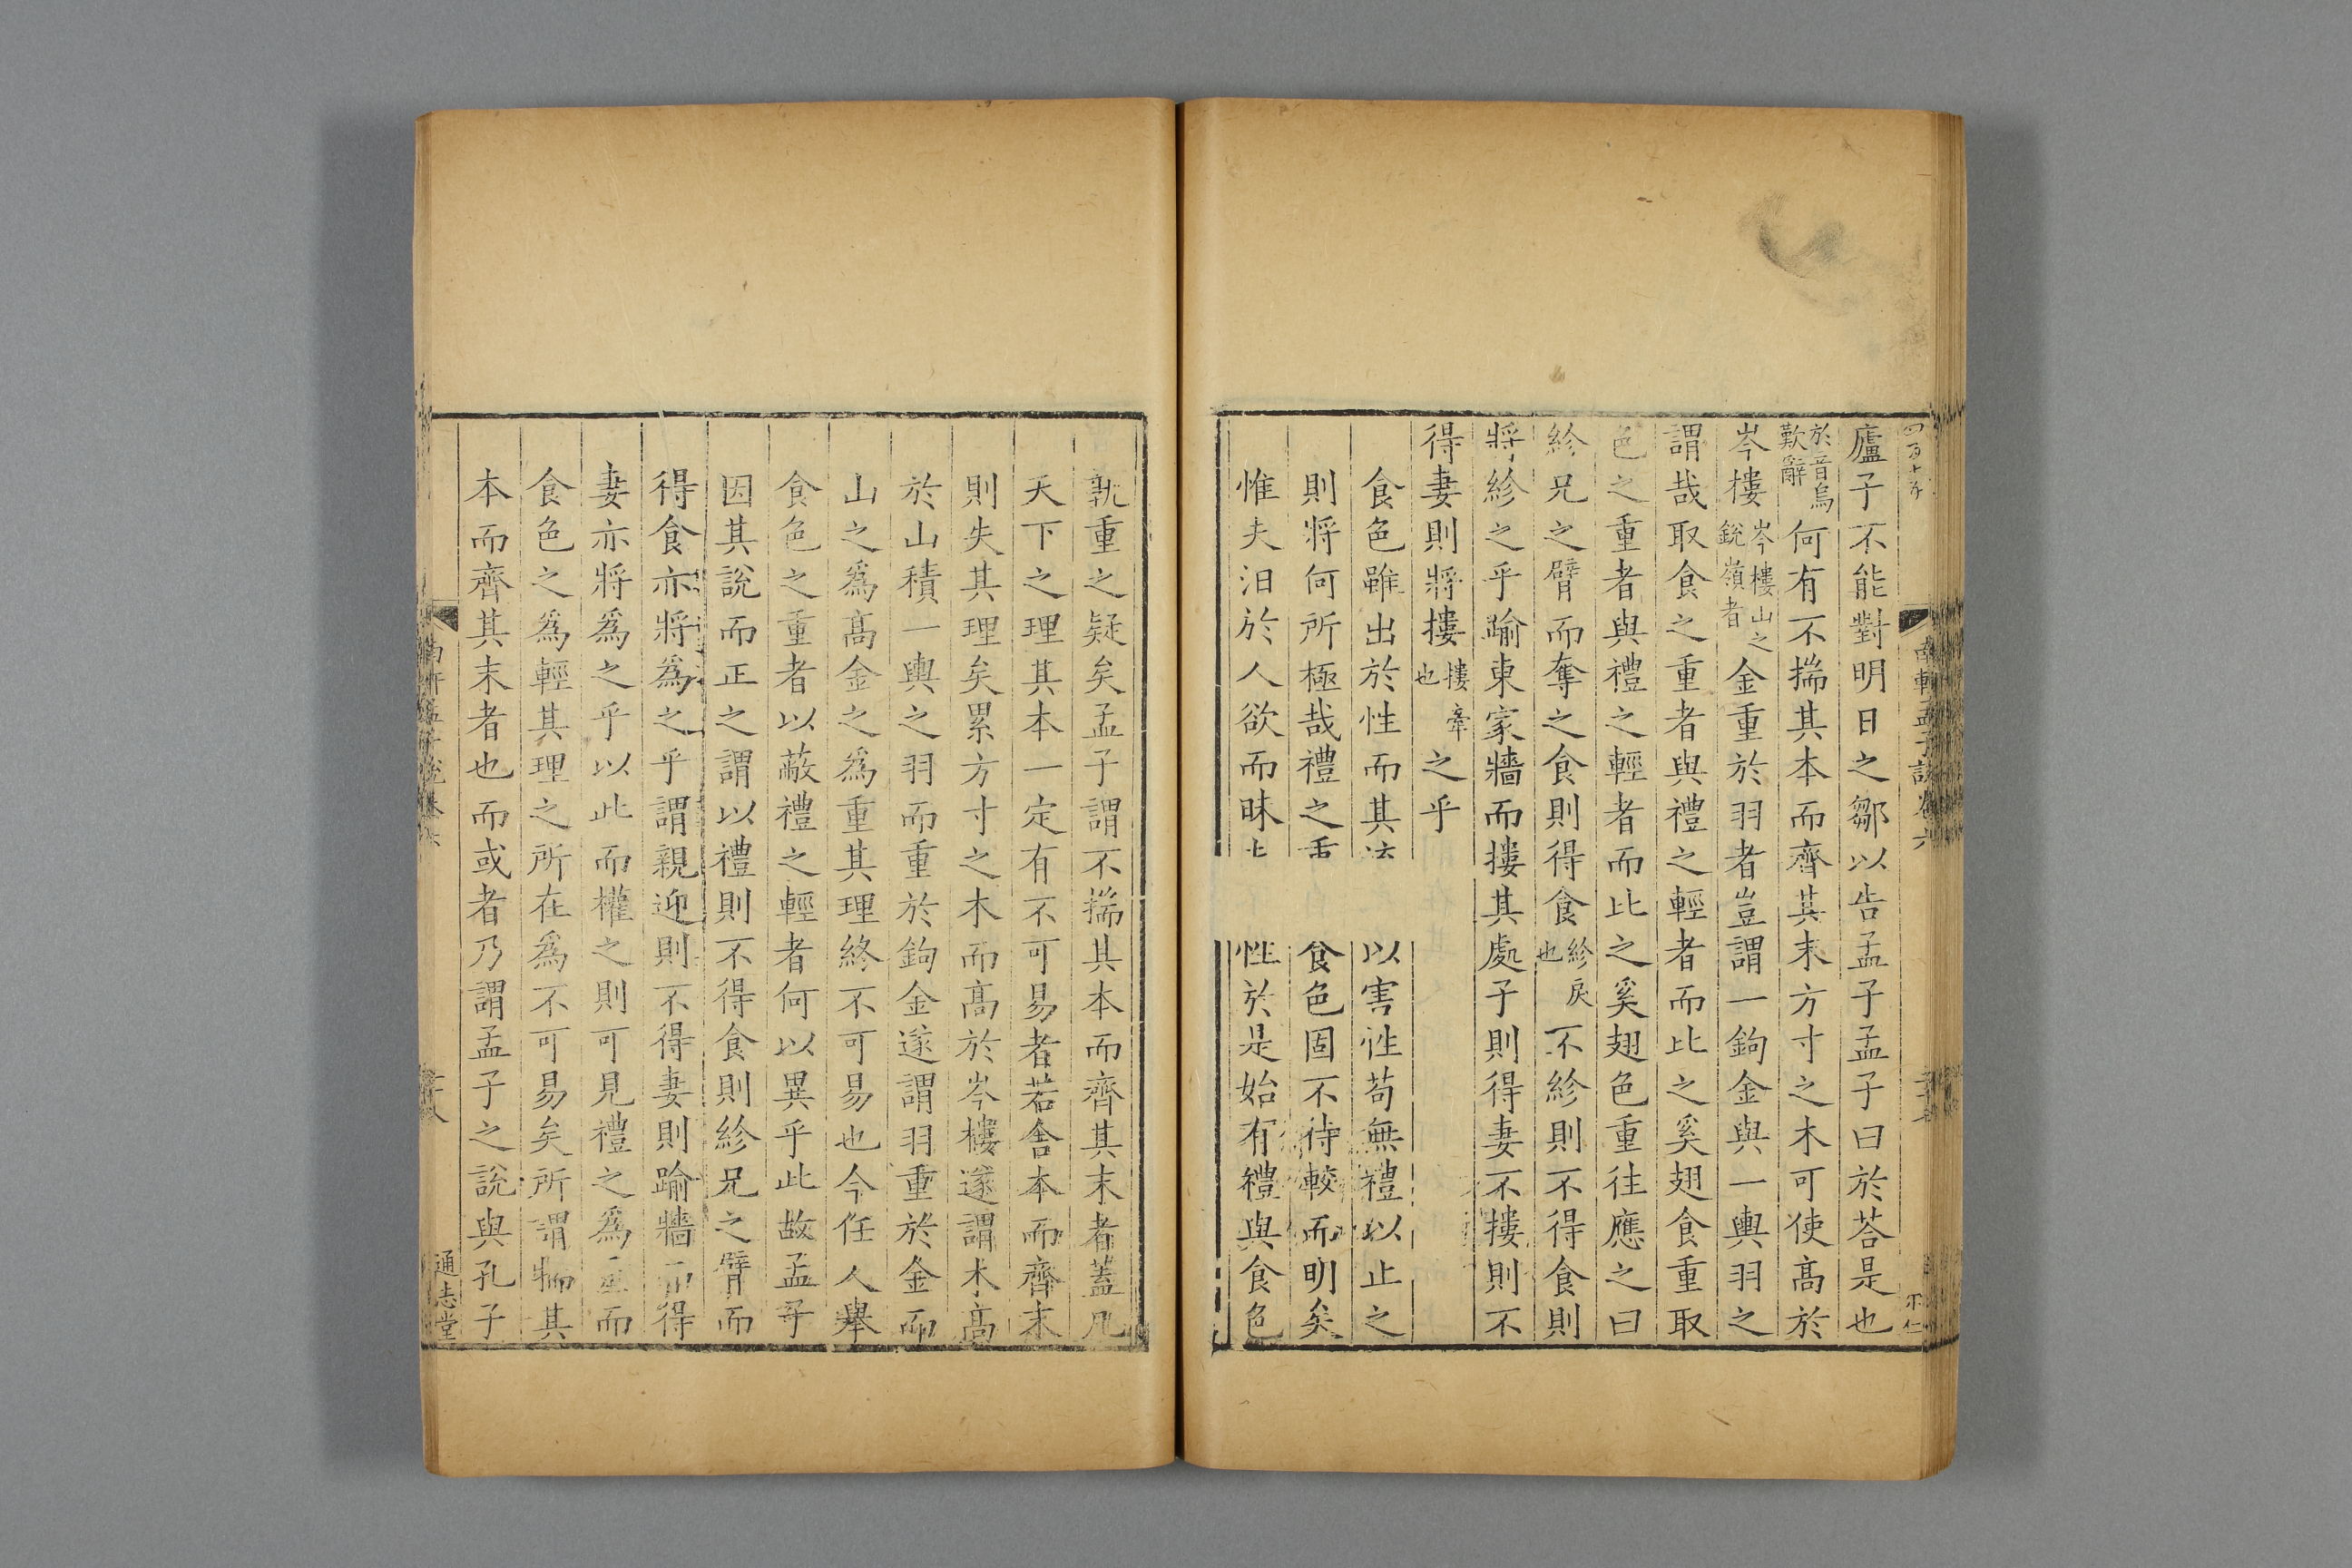 廬子不能對明日之鄒以告孟子孟子曰於荅是也
於音烏歎辭何有不揣其本而齊其末方寸之木可使髙於
岑樓岑樓山之銳嶺者金重於羽者豈謂一鉤金與一輿羽之
謂哉取食之重者與禮之輕者而比之奚翅食重取
色之重者與禮之輕者而比之奚翅色重往應之曰
紾兄之臂而奪之食則得食紾戾也不紾則不得食則
將紾之乎踰東家牆而摟其處子則得妻不摟則不
得妻則將摟摟牽也之乎
食色雖出於性而其 以害性苟無禮以止之
則將何所極哉禮之 食色固不待較而明矣
惟夫汨於人欲而昧 性於是始有禮與食色
南軒孟子說卷六
孰重之疑矣孟子謂不揣其本而齊其末者蓋凡
天下之理其本一定有不可易者若舍本而齊末
則失其理矣累方寸之木而髙於岑樓遂謂木髙
於山積一輿之羽而重於鉤金遂謂羽重於金而
山之爲髙金之爲重其理終不可易也今任人舉
食色之重者以蔽禮之輕者何以異乎此故孟子
因其說而正之謂以禮則不得食則紾兄之臂而
得食亦將爲之乎謂親迎則不得妻則踰牆而得
妻亦將爲之乎以此而權之則可見禮之爲重而
食色之爲輕其理之所在爲不可易矣所謂揣其
本而齊其末者也而或者乃謂孟子之說與孔子
通志堂